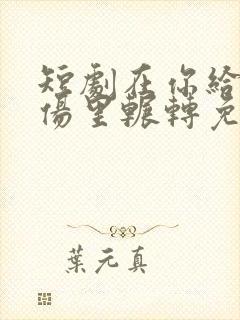 短劇在你給
傷里輾轉免
葉元真